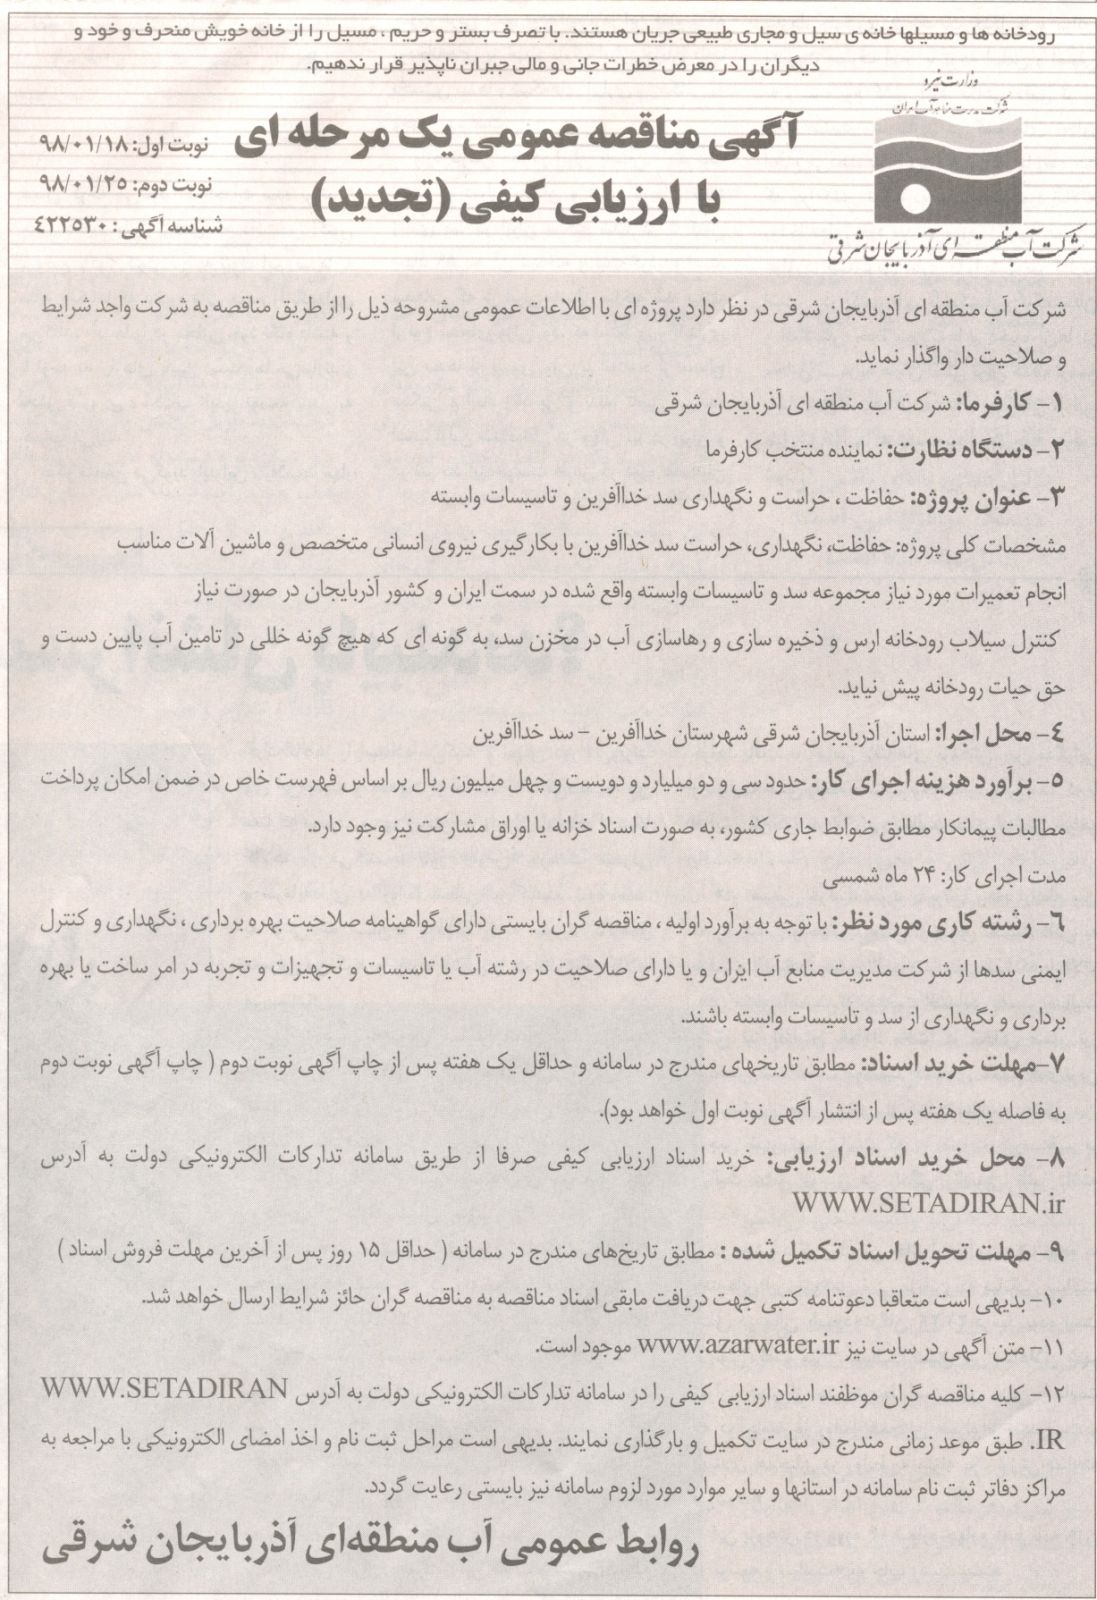 رودخانه ها و مسیلها خانه ی سیل و مجاری طبیعی جریان هستند. با تصرف بستر و حریم ، مسیل را از خانه خویش منحرف و خود و
دیگران را در معرض خطرات جانی و مالی جبران ناپذیر قرار ندهیم.
وزارت نیرو
شرکت مدیریت منابع آب ایران
شرکت آب منطقه ای آذربایجان شرقی
آگهی مناقصه عمومی یک مرحله ای
با ارزیابی کیفی (تجدید)
نوبت اول: ۹۸/۰۱/۱۸
نوبت دوم: ۹۸/۰۱/۲۵
شناسه آگهی : ٤٢٢٥٣٠
شرکت آب منطقه ای آذربایجان شرقی در نظر دارد پروژه ای با اطلاعات عمومی مشروحه ذیل را از طریق مناقصه به شرکت واجد شرایط
و صلاحیت دار واگذار نماید.
۱- کارفرما: شرکت آب منطقه ای آذربایجان شرقی
۲- دستگاه نظارت: نماینده منتخب کارفرما
۳- عنوان پروژه: حفاظت ، حراست و نگهداری سد خداآفرین و تاسیسات وابسته
مشخصات کلی پروژه: حفاظت، نگهداری، حراست سد خداآفرین با بکارگیری نیروی انسانی متخصص و ماشین آلات مناسب
انجام تعمیرات مورد نیاز مجموعه سد و تاسیسات وابسته واقع شده در سمت ایران و کشور آذربایجان در صورت نیاز
کنترل سیلاب رودخانه ارس و ذخیره سازی و رهاسازی آب در مخزن سد، به گونه ای که هیچ گونه خللی در تامین آب پایین دست و
حق حیات رودخانه پیش نیاید.
٤- محل اجرا: استان آذربایجان شرقی شهرستان خداآفرین - سد خداآفرین
٥- برآورد هزینه اجرای کار: حدود سی و دو میلیارد و دویست و چهل میلیون ریال بر اساس فهرست خاص در ضمن امکان پرداخت
مطالبات پیمانکار مطابق ضوابط جاری کشور، به صورت اسناد خزانه یا اوراق مشارکت نیز وجود دارد.
مدت اجرای کار: ۲۴ ماه شمسی
٦- رشته کاری مورد نظر: با توجه به برآورد اولیه ، مناقصه گران بایستی دارای گواهینامه صلاحیت بهره برداری ، نگهداری و کنترل
ایمنی سدها از شرکت مدیریت منابع آب ایران و یا دارای صلاحیت در رشته آب یا تاسیسات و تجهیزات و تجربه در امر ساخت یا بهره
برداری و نگهداری از سد و تاسیسات وابسته باشند.
۷-مهلت خرید اسناد: مطابق تاریخهای مندرج در سامانه و حداقل یک هفته پس از چاپ آگهی نوبت دوم ( چاپ آگهی نوبت دوم
به فاصله یک هفته پس از انتشار آگهی نوبت اول خواهد بود).
۸- محل خرید اسناد ارزیابی: خرید اسناد ارزیابی کیفی صرفا از طریق سامانه تدارکات الکترونیکی دولت به آدرس
WWW.SETADIRAN.ir
۹- مهلت تحویل اسناد تکمیل شده : مطابق تاریخ‌های مندرج در سامانه ( حداقل ۱۵ روز پس از آخرین مهلت فروش اسناد )
۱۰- بدیهی است متعاقبا دعوتنامه کتبی جهت دریافت مابقی اسناد مناقصه به مناقصه گران حائز شرایط ارسال خواهد شد.
۱۱- متن آگهی در سایت نیز www.azarwater.ir موجود است.
۱۲- کلیه مناقصه گران موظفند اسناد ارزیابی کیفی را در سامانه تدارکات الکترونیکی دولت به آدرس WWW.SETADIRAN
.IR طبق موعد زمانی مندرج در سایت تکمیل و بارگذاری نمایند. بدیهی است مراحل ثبت نام و اخذ امضای الکترونیکی با مراجعه به
مراکز دفاتر ثبت نام سامانه در استانها و سایر موارد مورد لزوم سامانه نیز بایستی رعایت گردد.
روابط عمومی آب منطقه‌ای آذربایجان شرقی